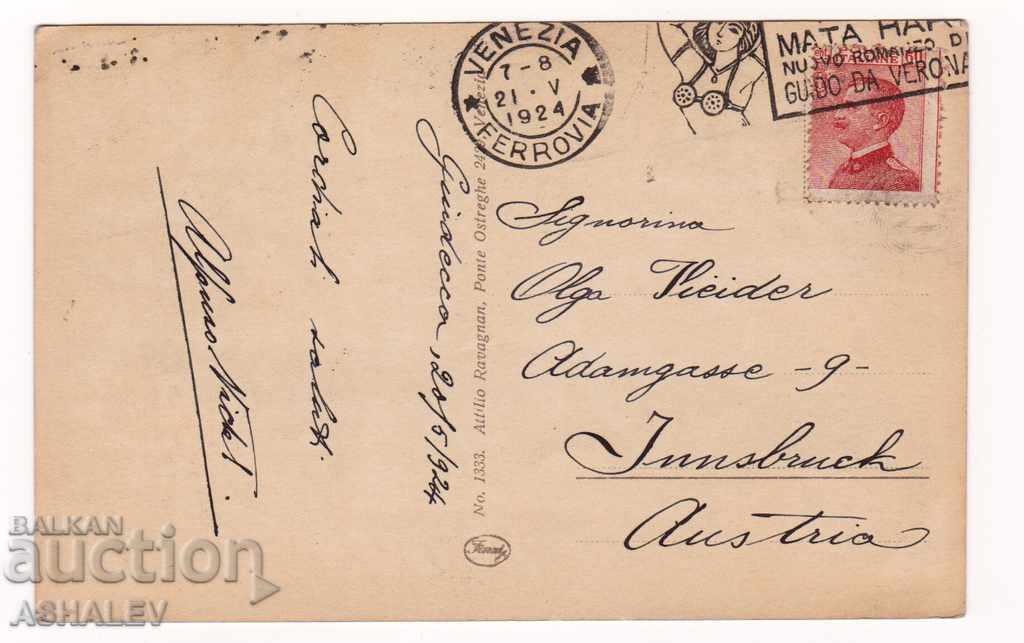 VENEZIA
7-8
21·V
1924
FERROVIA
MATA HARI
NUOVO ROMANZO DI
GUIDO DA VERONA
60
Signorina
Olga Vieider
Adamgasse -9-
Innsbruck
Austria
No. 1333. Attilio Ravagnan, Ponte Ostreghe Venezia
Giudecca, 20/5/924
Cordiali saluti.
BALKAN
auction
ASHALEV